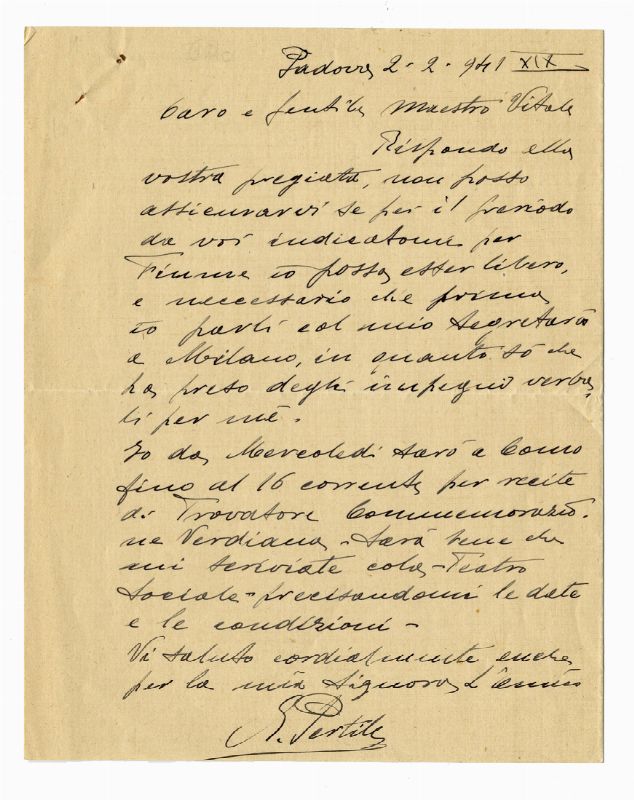 Padova 2 - 2 - 941 XIX
Caro e gentile Maestro Vitale
Rispondo alla
vostra pregiata, non posso
assicurarvi se per il periodo
da voi indicatomi per
Fiume io possa esser libero,
e neccessario che prima
io parli col mio segretario
a Milano, in quanto sò che
ha preso degli impegni verba-
li per mè.
Io da Mercoledi sarò a Como
fino al 16 corrente per recite
di Trovatore Commemorazio-
ne Verdiana - Sarà bene che
mi scriviate colà - Teatro
Sociale - precisandomi le date
e le condizioni -
Vi saluto cordialmente anche
per la mia Signora L'amico
A. Pertile